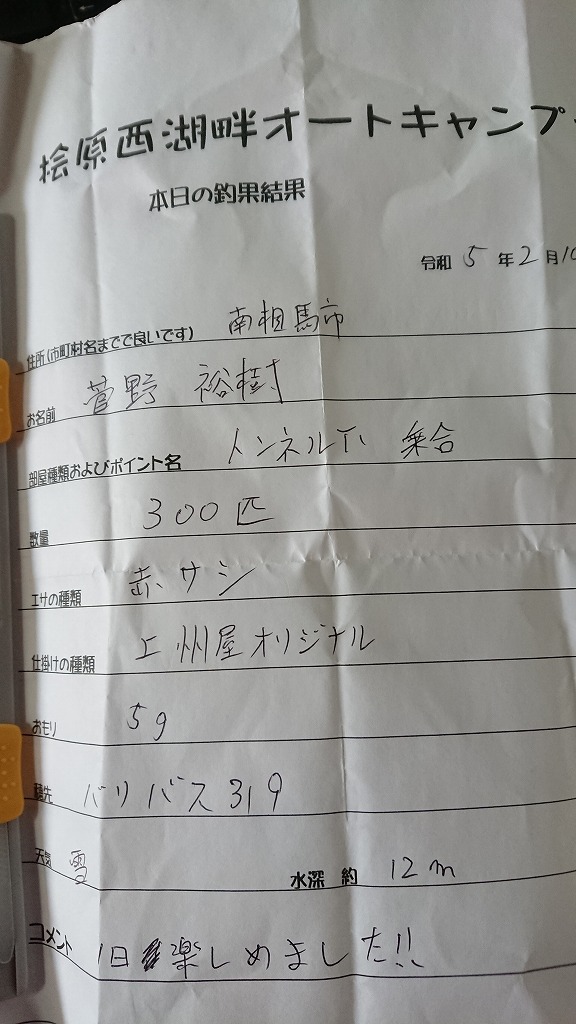 桧原西湖畔オートキャンプ
本日の釣果結果
令和 5 年 2 月 10
住所(市町村名までで良いです) 南相馬市
お名前 菅野 裕樹
部屋種類およびポイント名 トンネル下 乗合
数量 300匹
エサの種類 赤サシ
仕掛けの種類 上州屋オリジナル
おもり 5g
穂先 バリバス319
天気 雪 水深 約 12m
コメント 1日楽しめました!!